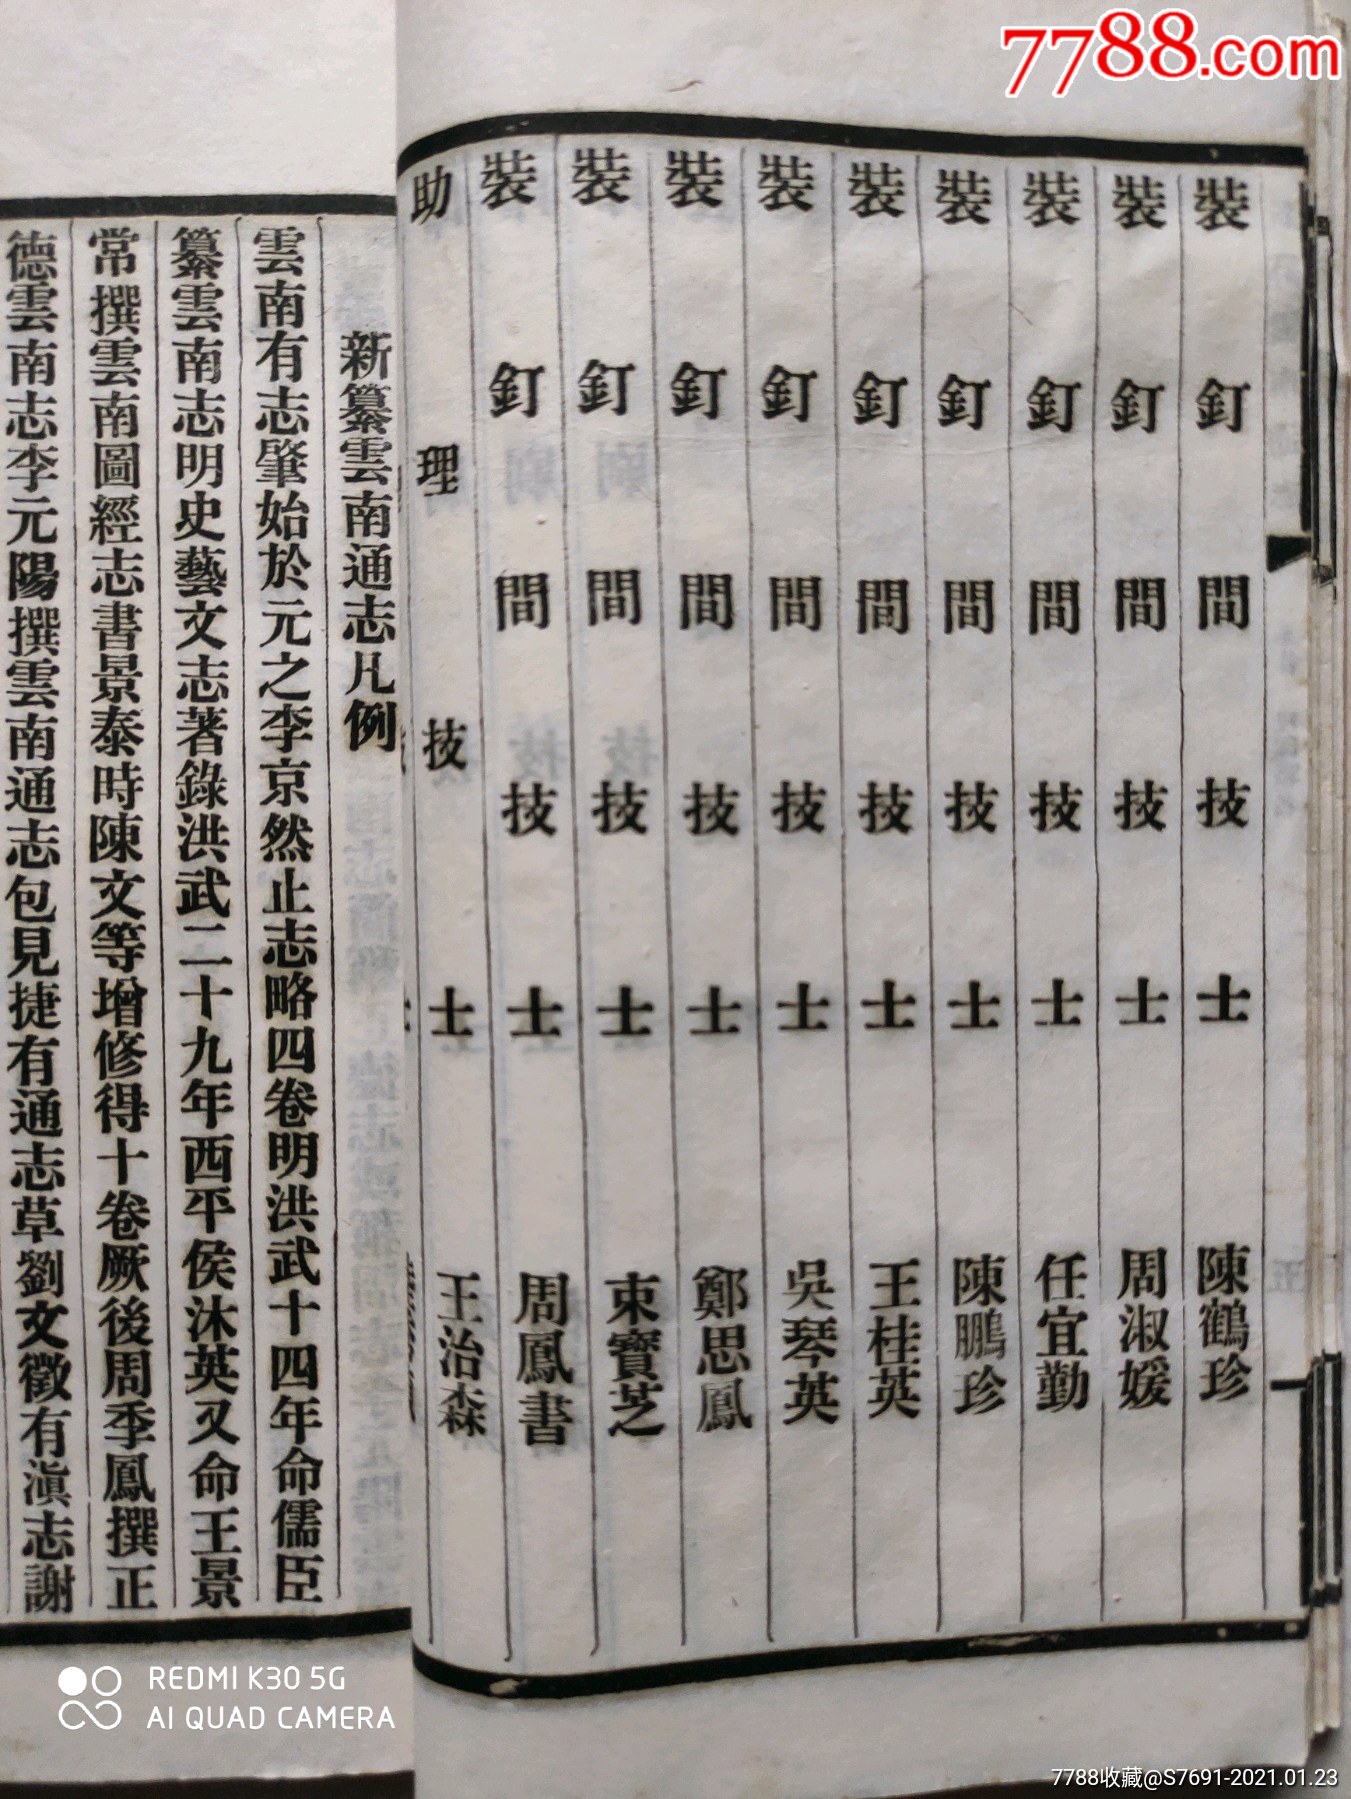 7788.com
裝釘間技士 陳鶴珍
裝釘間技士 周淑媛
裝釘間技士 任宜勤
裝釘間技士 陳鵬珍
裝釘間技士 王桂英
裝釘間技士 吳琴英
裝釘間技士 鄭思鳳
裝釘間技士 束寶芝
裝釘間技士 周鳳書
助理技士 王治森
新纂雲南通志凡例
雲南有志肇始於元之李京然止志略四卷明洪武十四年命儒臣
纂雲南志明史藝文志著錄洪武二十九年西平侯沐英又命王景
常撰雲南圖經志書景泰時陳文等增修得十卷厥後周季鳳撰正
德雲南志李元陽撰雲南通志包見捷有通志草劉文徵有滇志謝
REDMI K30 5G
AI QUAD CAMERA
7788收藏@S7691-2021.01.23